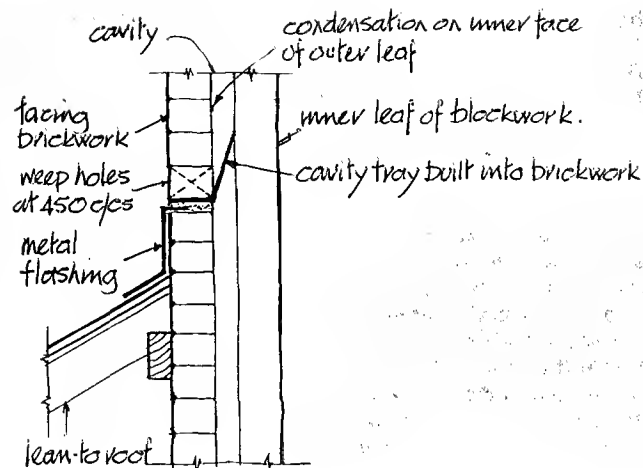 cavity
condensation on inner face
of outer leaf
facing
brickwork
inner leaf of blockwork.
weep holes
at 450 c/cs
cavity tray built into brickwork
metal
flashing
lean-to roof